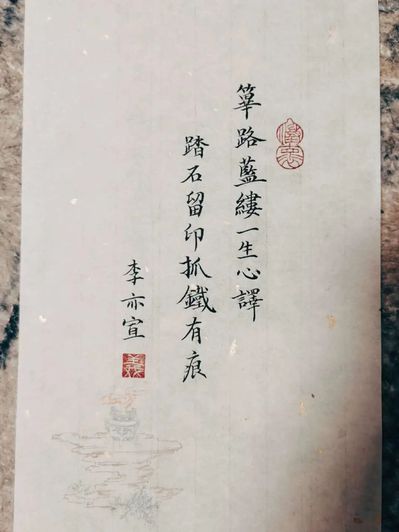 篳路藍縷一生心譯
踏石留印抓鐵有痕
李亦宣